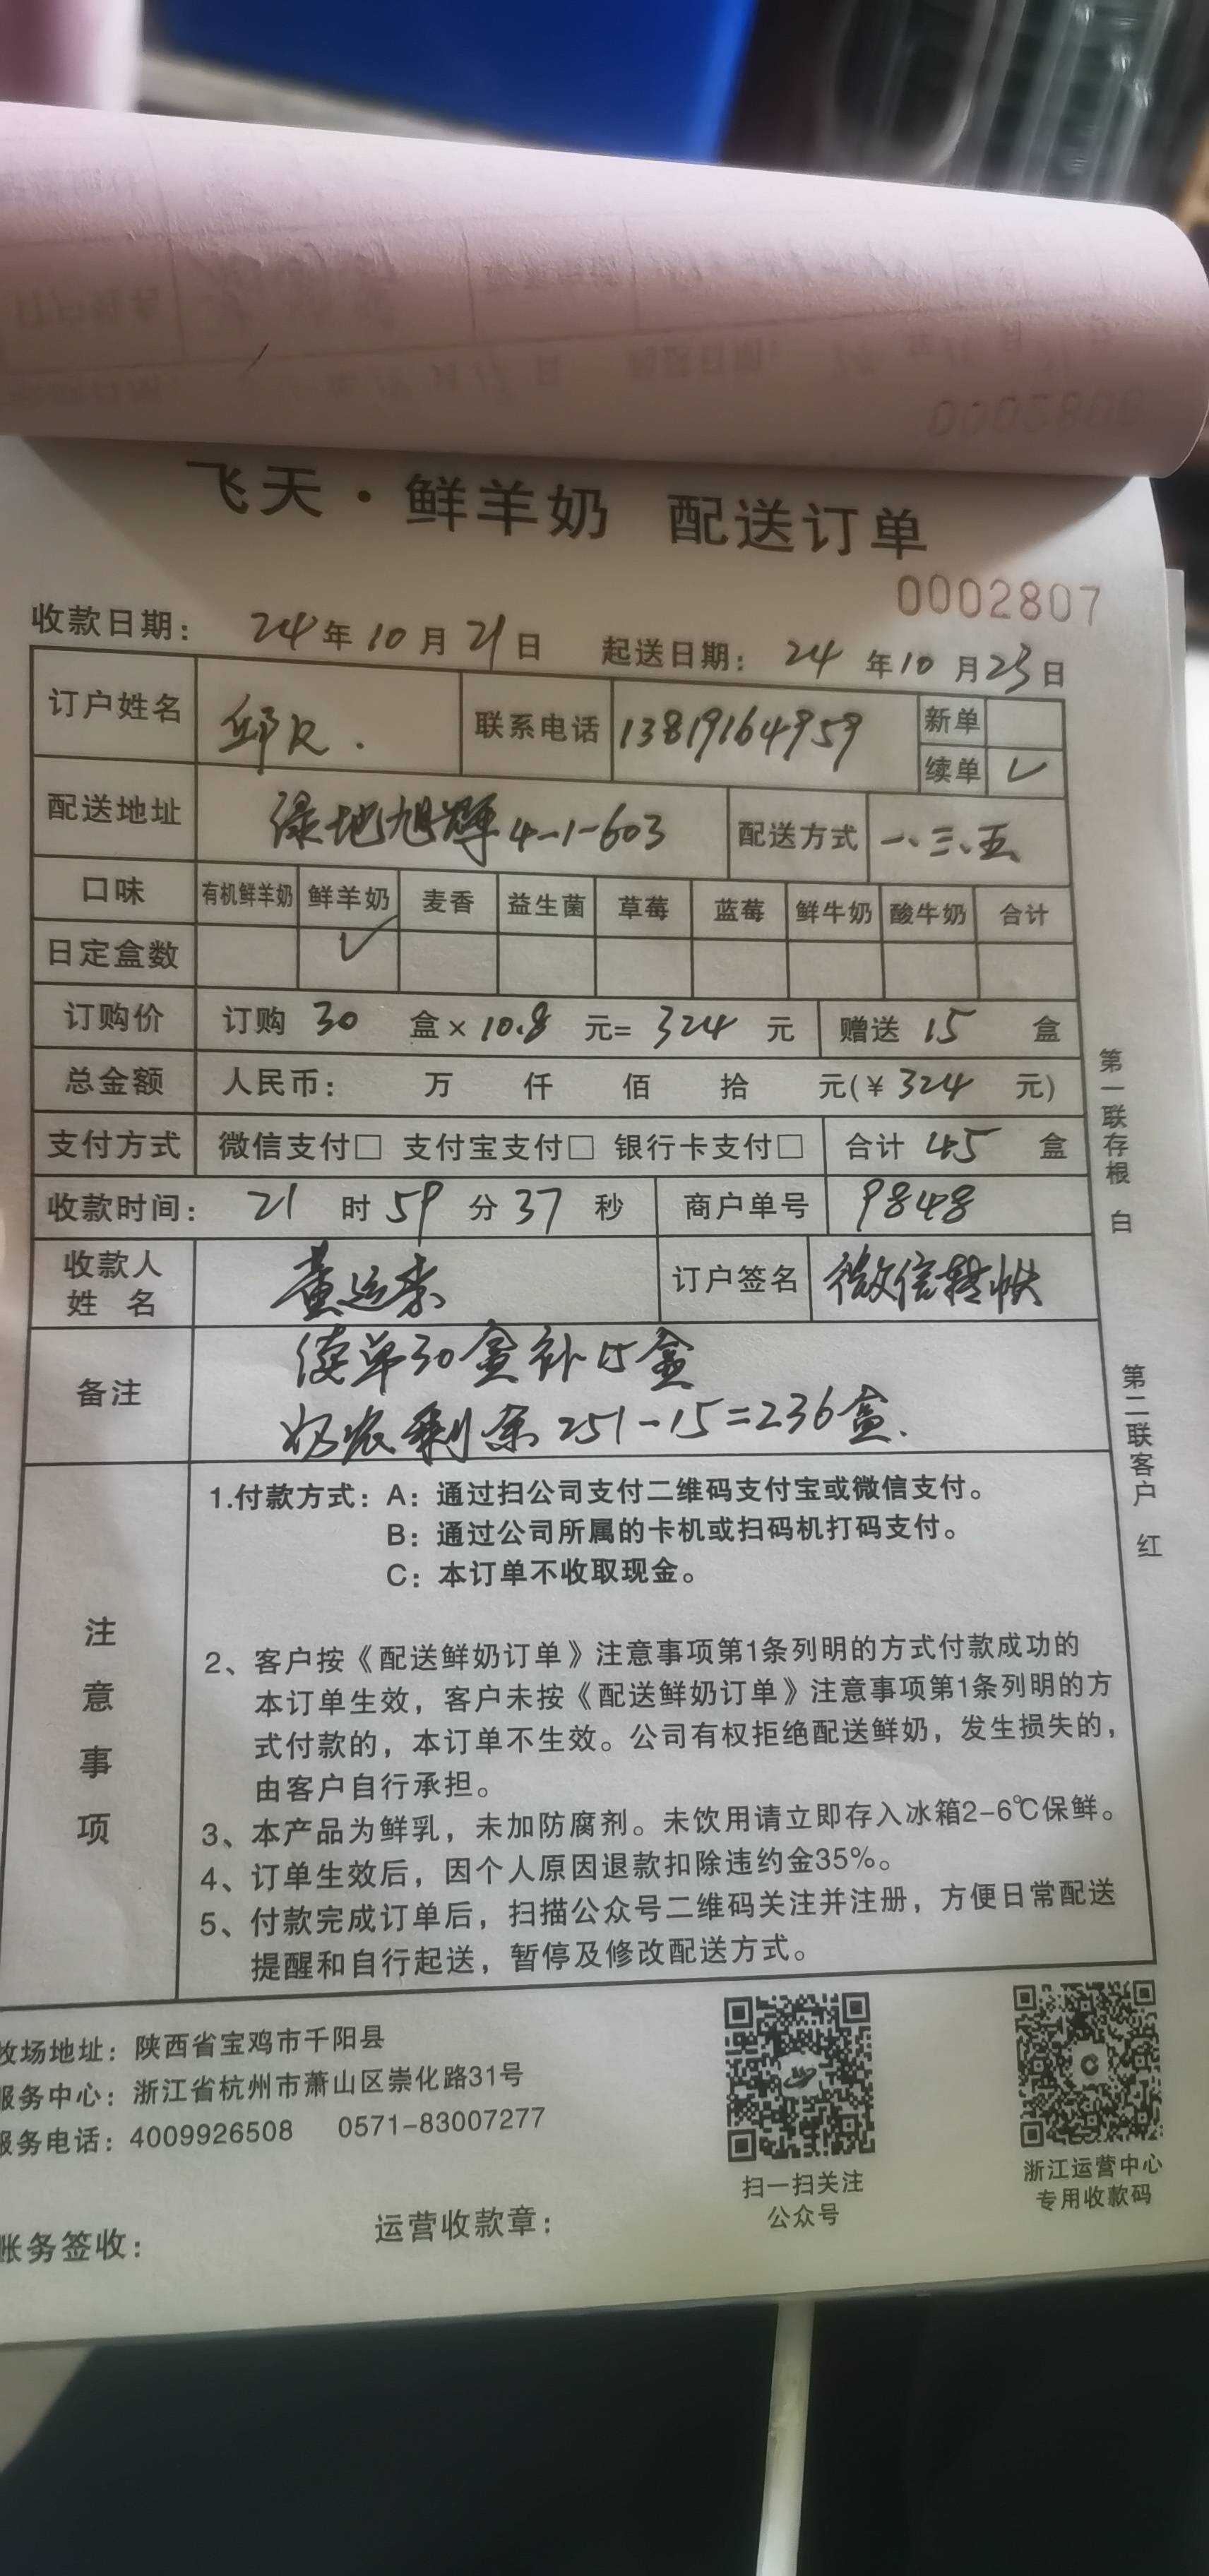 飞天·鲜羊奶 配送订单
0002807
收款日期: 24年10月21日 起送日期: 24年10月23日
订户姓名 邱 联系电话 13819164959 新单
续单 ✓
配送地址 绿地旭辉4-1-603 配送方式 一、三、五
口味 有机鲜羊奶 鲜羊奶 麦香 益生菌 草莓 蓝莓 鲜牛奶 酸牛奶 合计
日定盒数 ✓
订购价 订购 30 盒×10.8 元=324 元 赠送 15 盒
总金额 人民币: 万 仟 佰 拾 元(¥324 元)
支付方式 微信支付□ 支付宝支付□ 银行卡支付□ 合计 45 盒
收款时间: 21 时 59 分 37 秒 商户单号 9848
收款人姓名 黄运来 订户签名 微信转帐
备注 续单30盒补15盒
奶农剩余251-15=236盒.
第一联存根 白
第二联客户 红
注意事项
1.付款方式: A: 通过扫公司支付二维码支付宝或微信支付。
B: 通过公司所属的卡机或扫码机打码支付。
C: 本订单不收取现金。
2、客户按《配送鲜奶订单》注意事项第1条列明的方式付款成功的
本订单生效，客户未按《配送鲜奶订单》注意事项第1条列明的方
式付款的，本订单不生效。公司有权拒绝配送鲜奶，发生损失的，
由客户自行承担。
3、本产品为鲜乳，未加防腐剂。未饮用请立即存入冰箱2-6℃保鲜。
4、订单生效后，因个人原因退款扣除违约金35%。
5、付款完成订单后，扫描公众号二维码关注并注册，方便日常配送
提醒和自行起送，暂停及修改配送方式。
牧场地址: 陕西省宝鸡市千阳县
服务中心: 浙江省杭州市萧山区崇化路31号
服务电话: 4009926508 0571-83007277
扫一扫关注
公众号
浙江运营中心
专用收款码
账务签收: 运营收款章: